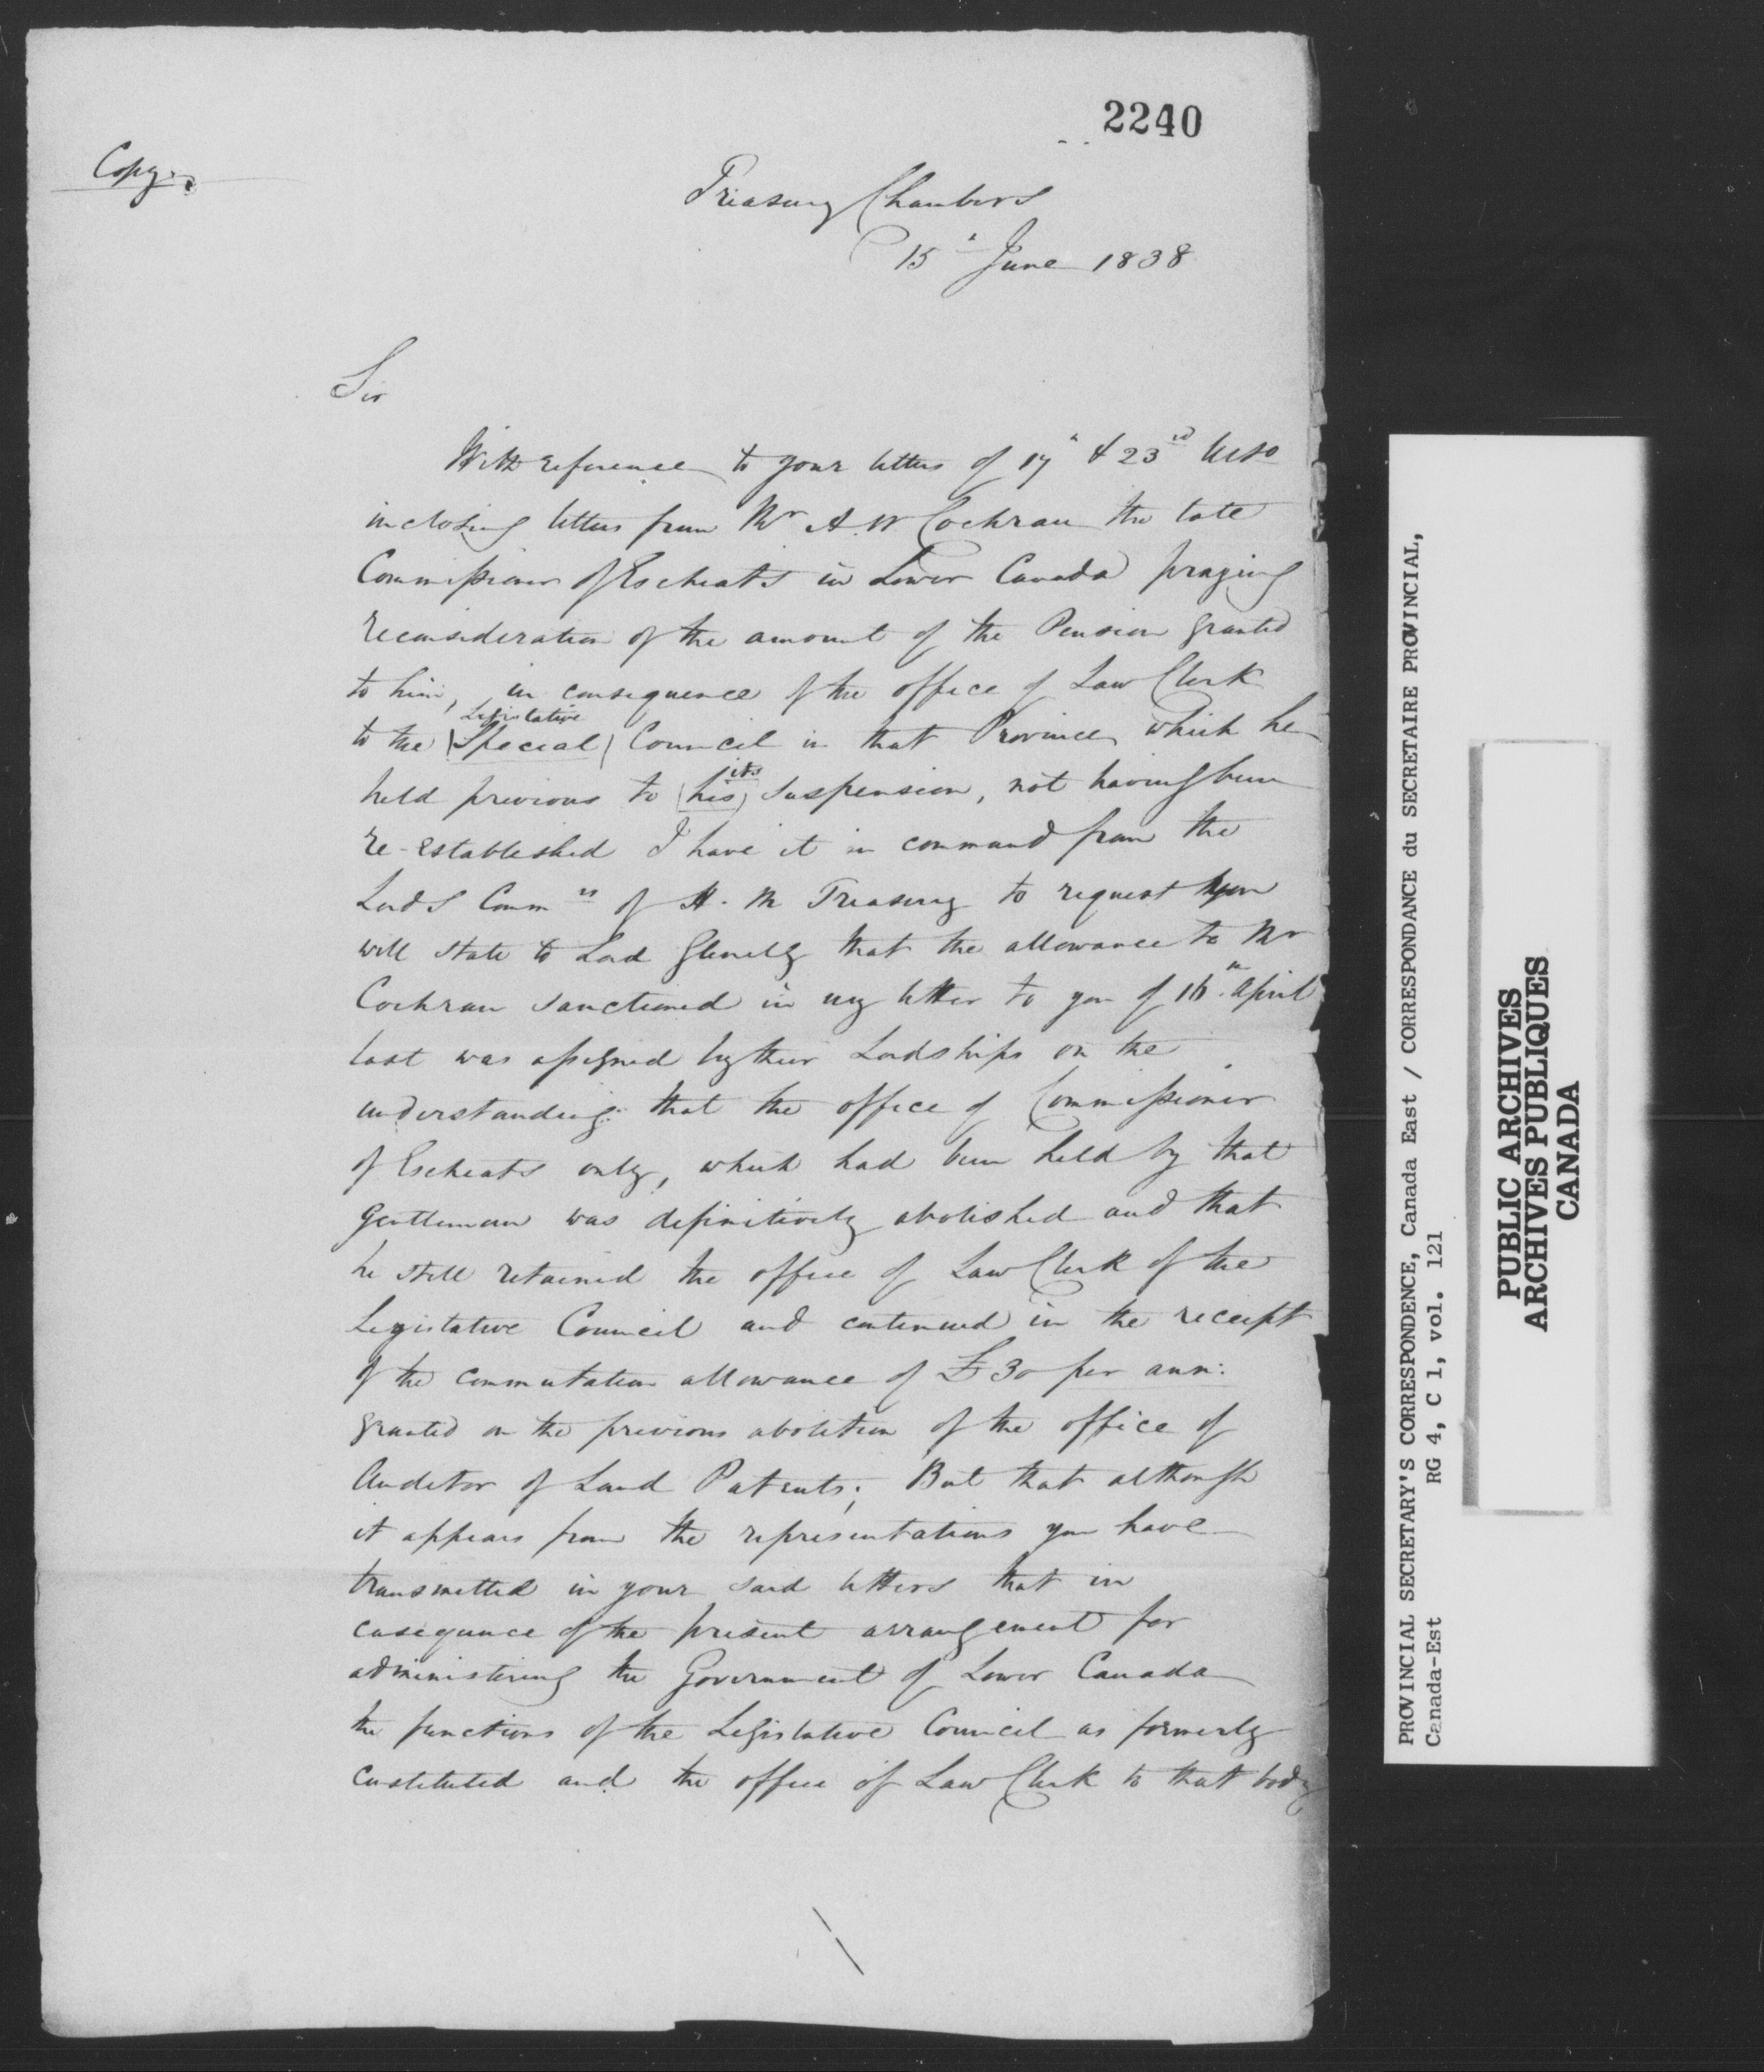 2240
Copy.
Treasury Chambers
15th June 1838
Sir
With reference to your letters of 17th & 23rd Ulto
inclosing letters from Mr A. W Cochran the late
Commissioner of Escheats in Lower Canada praying
reconsideration of the amount of the Pension granted
to him, in consequence of the office of Law Clerk
Legislative
to the (Special) Council in that Province which he
its
held previous to (his) suspension, not having been
re-established I have it in command from the
Lords Commrs of H. M Treasury to request you
will state to Lord Glenelg that the allowance to Mr
Cochran sanctioned in my letter to you of 16th April
last was assigned by their Lordships on the
understanding that the office of Commissioner
of Escheats only, which had been held by that
Gentleman was definitively abolished and that
he still retained the office of Law Clerk of the
Legislative Council and continued in the receipt
of the commutation allowance of £30 per ann:
granted on the previous abolition of the office of
Auditor of Land Patents; But that although
it appears from the representations you have
transmitted in your said letters that in
cosequence of the present arrangement for
administering the Government of Lower Canada
the functions of the Legislative Council as formerly
constituted and the office of Law Clerk to that body
PROVINCIAL SECRETARY'S CORRESPONDENCE, Canada East / CORRESPONDANCE du SECRETAIRE PROVINCIAL,
Canada-Est RG 4, C 1, vol. 121
PUBLIC ARCHIVES
ARCHIVES PUBLIQUES
CANADA